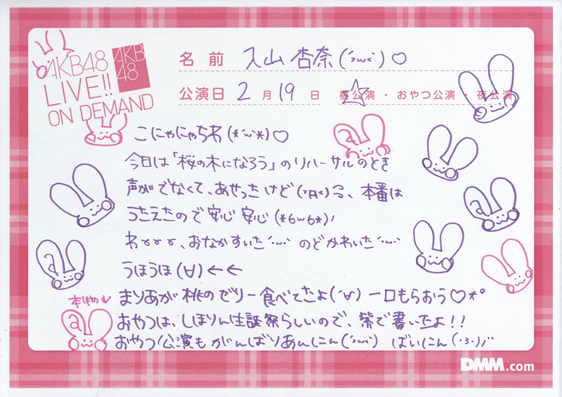 AKB48
LIVE!!
ON DEMAND
AKB
48
名前 入山 杏奈(´ω`)♡
公演日 2月19日 昼公演・おやつ公演・夜公演
こにゃにゃちわ(*´ω`*)♡
今日は「桜の木になろう」のリハーサルのとき
声がでなくて、あせったけど(°Д°)
、本番は
うたえたので安心安心(*6ω6*)ノ
おなかすいた´ω` のどかわいた´ω`
うほうほ(∀)←←
まりあが桃のゼリー食べてたよ(´∀`)一口もらおう♡*°
本物
おやつは、しほりん生誕祭らしいので、紫で書いたよ!!
おやつ公演もがんばりあんにんっ(´ω`) ばいにん(´・3・)ノ
DMM.com